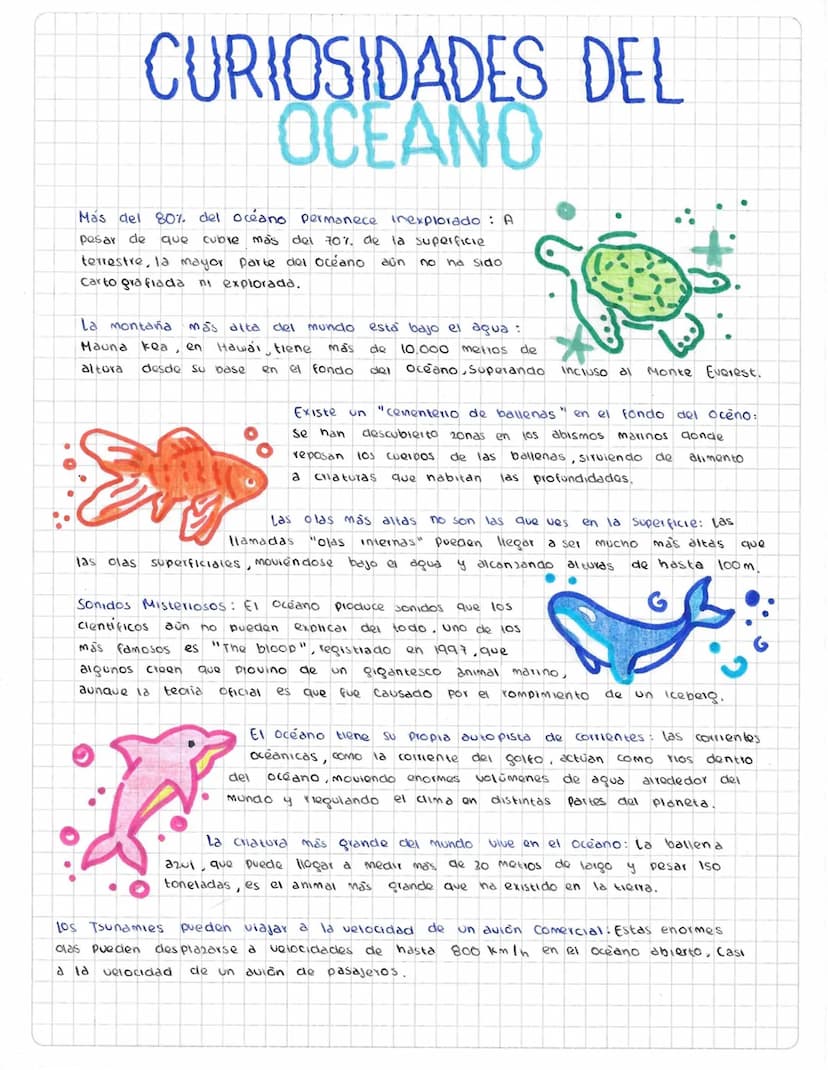 CURIOSIDADES DEL
OCÉANO
Más del 80% del océano permanece inexplorado: A
pesar de que cubre más del 70% de la superficie
terrestre, la mayor parte del océano aún no ha sido
cartografiada ni explorada.
La montaña más alta del mundo está bajo el agua:
Mauna Kea, en Hawái, tiene más de 10.000 metros de
altura desde su base en el fondo del océano, superando incluso al Monte Everest.
Existe un "cementerio de ballenas" en el fondo del océno:
Se han descubierto zonas en los abismos marinos donde
reposan los cuerpos de las ballenas, sirviendo de alimento
a criaturas que habitan las profundidades.
Las olas más altas no son las que ves en la superficie: Las
llamadas "olas internas" pueden llegar a ser mucho más altas que
las olas superficiales, moviéndose bajo el agua y alcanzando alturas de hasta 100m.
Sonidos Misteriosos: El océano produce sonidos que los
científicos aún no pueden explicar del todo. Uno de los
más famosos es "The bloop", registrado en 1997, que
algunos creen que provino de un gigantesco animal marino,
aunque la teoría oficial es que fue causado por el rompimiento de un iceberg.
El océano tiene su propia autopista de corrientes: las corrientes
oceánicas, como la corriente del golfo, actúan como ríos dentro
del océano, moviendo enormes volúmenes de agua alrededor del
mundo y rregulando el clima en distintas partes del planeta.
La criatura más grande del mundo vive en el océano: La ballena
azul, que puede llegar a medir más de 30 metros de largo y pesar 150
toneladas, es el animal más grande que ha existido en la tierra.
Los Tsunamies pueden viajar a la velocidad de un avión comercial: Estas enormes
olas pueden desplazarse a velocidades de hasta 800 km/h en el océano abierto, casi
a la velocidad de un avión de pasajeros.